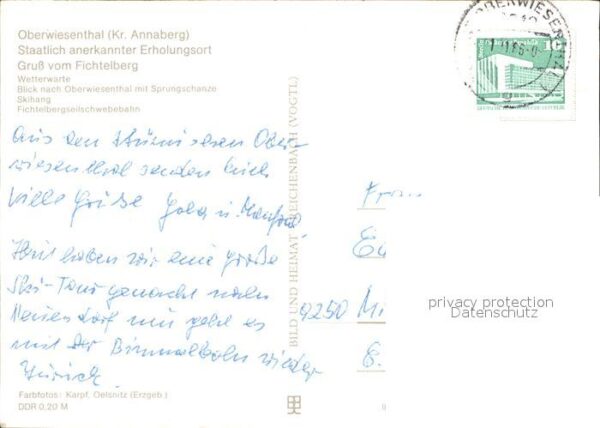 Oberwiesenthal (Kr. Annaberg)
Staatlich anerkannter Erholungsort
Gruß vom Fichtelberg
Wetterwarte
Blick nach Oberwiesenthal mit Sprungschanze
Skihang
Fichtelbergseilschwebebahn
Aus dem stürmischen Ober-
wiesenthal senden Euch
viele Grüße
Heut haben wir eine große
Ski-Tour gemacht nach
Neudorf nun geht es
mit der Bimmelbahn wieder
zurück.
Farbfotos: Karpf, Oelsnitz (Erzgeb.)
DDR 0,20 M
BILD UND HEIMAT REICHENBACH (VOGTL)
OBERWIESENTHAL
10
9250 Mi
privacy protection
Datenschutz